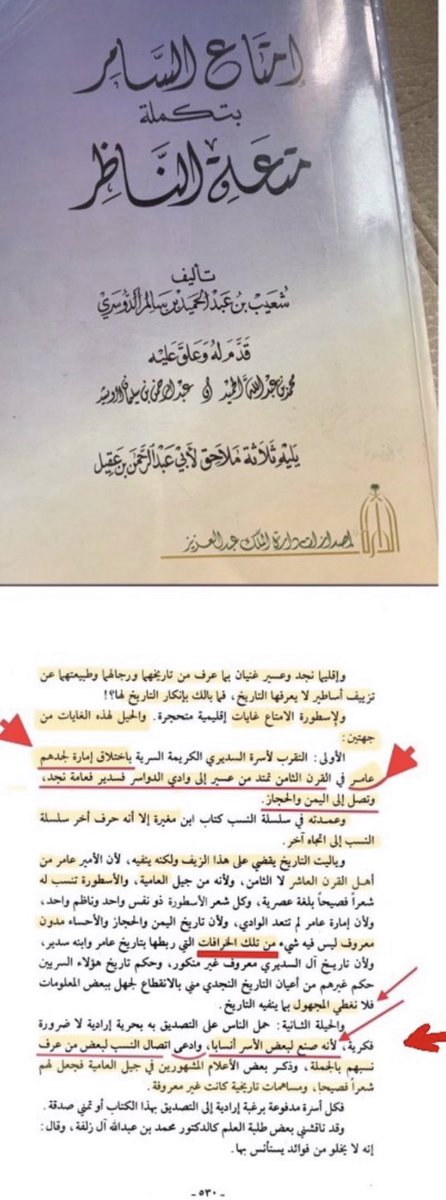 إمتاع السامر
بتكملة
متعة الناظر
تأليف
شعيب بن عبد الحميد بن سالم الدوسري
قدم له وعلق عليه
محمد بن عبدالله الحميد عبدالرحمن بن سليمان الرويشد
يليه ثلاثة ملاحق لأبي عبد الرحمن بن عقيل
إصدارات دارة الملك عبد العزيز
وإقليما نجد وعسير غنيان بما عرف من تاريخهما ورجالهما وطبيعتهما عن
تزييف أساطير لا يعرفها التاريخ، فما بالك بإنكار التاريخ لها؟!
ولإسطورة الامتاع غايات إقليمية متحجرة. والحيل لهذه الغايات من
جهتين:
الأولى: التقرب لأسرة السديري الكريمة السرية باختلاق إمارة لجدهم
عامر في القرن الثامن تمتد من عسير إلى وادي الدواسر فسدير فعامة نجد،
وتصل إلى اليمن والحجاز.
وعمدته في سلسلة النسب كتاب ابن مغيرة إلا أنه حرف آخر سلسلة
النسب إلى اتجاه آخر.
وياليت التاريخ يقضي على هذا الزيف ولكنه ينفيه، لأن الأمير عامر من
أهل القرن العاشر لا الثامن، ولأنه من جيل العامية، والأسطورة تنسب له
شعراً فصيحاً بلغة عصرية، وكل شعر الأسطورة ذو نفس واحد وناظم واحد،
ولأن إمارة عامر لم تتعد الوادي، ولأن تاريخ اليمن والحجاز والأحساء مدون
معروف ليس فيه شيء من تلك الخرافات التي ربطها بتاريخ عامر وابنه سدير،
ولأن تاريخ آل السديري معروف غير منكور، وحكم تاريخ هؤلاء السريين
حكم غيرهم من أعيان التاريخ النجدي مني بالانقطاع لجهل ببعض المعلومات
فلا نغطي المجهول بما ينفيه التاريخ.
والحيلة الثانية: حمل الناس على التصديق به بحرية إرادية لا ضرورة
فكرية، لأنه صنع لبعض الأسر أنسابا، وادعى اتصال النسب لبعض من عرف
نسبهم بالجملة، وذكر بعض الأعلام المشهورين في جيل العامية فجعل لهم
شعراً فصيحا، ومساهمات تاريخية كانت غير معروفة.
فكل أسرة مدفوعة برغبة إرادية إلى التصديق بهذا الكتاب أو تمني صدقه.
وقد ناقشني بعض طلبة العلم كالدكتور محمد بن عبدالله آل زلفة، وقال:
إنه لا يخلو من فوائد يستأنس بها.
- ٥٣٠ -